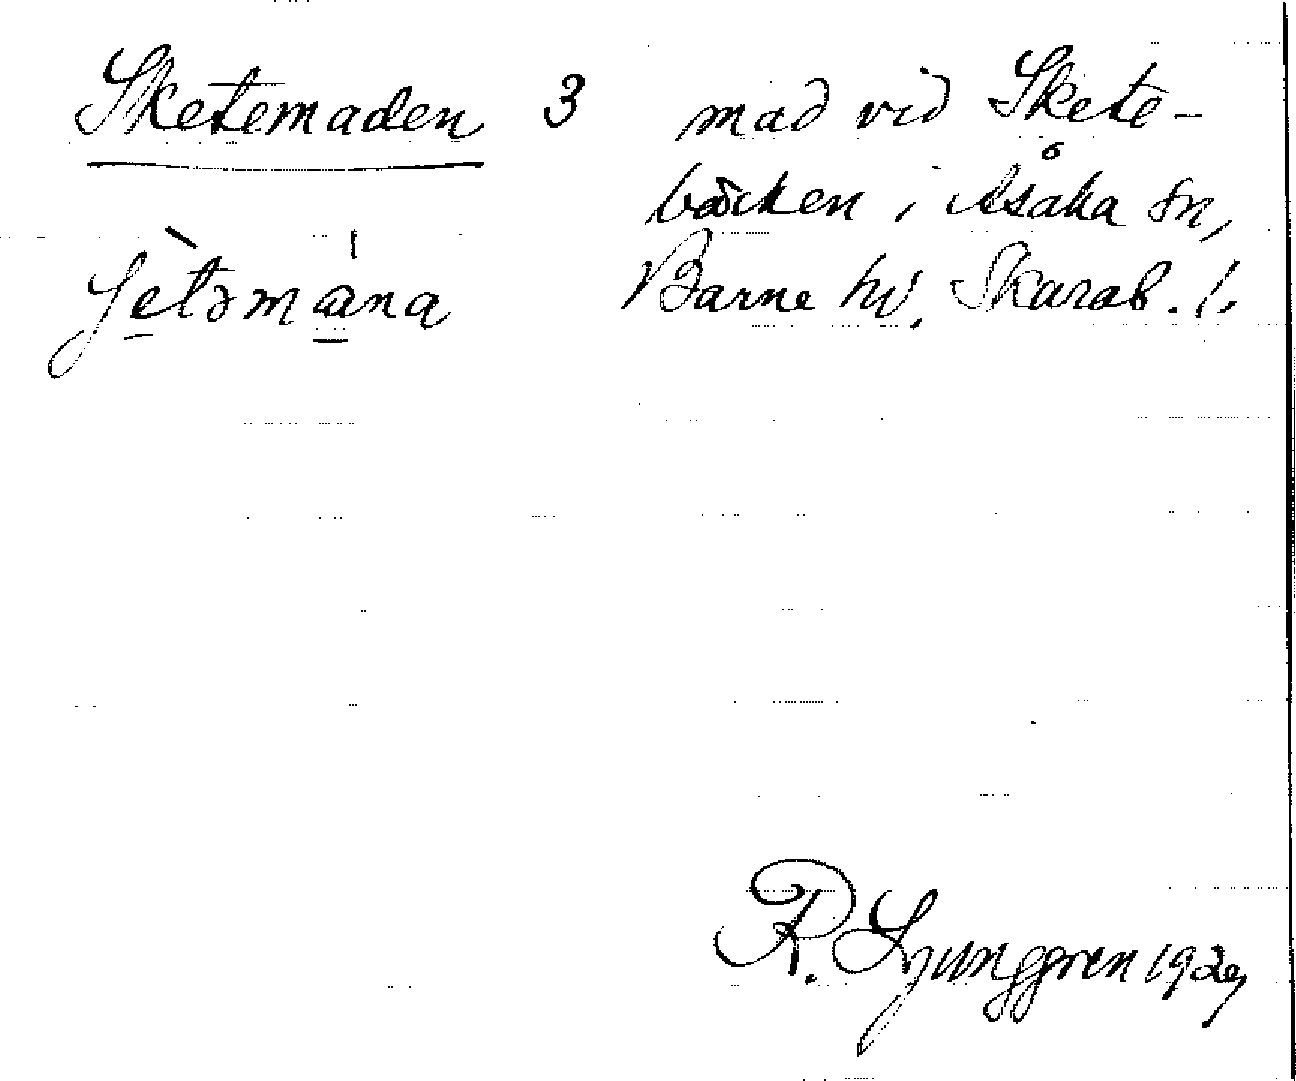 Sketemaden 3 mad vid Skete-
bäcken i Åsaka sn,
Barne hd. Skarab. l.
ʃètəmána
R. Ljunggren 1929